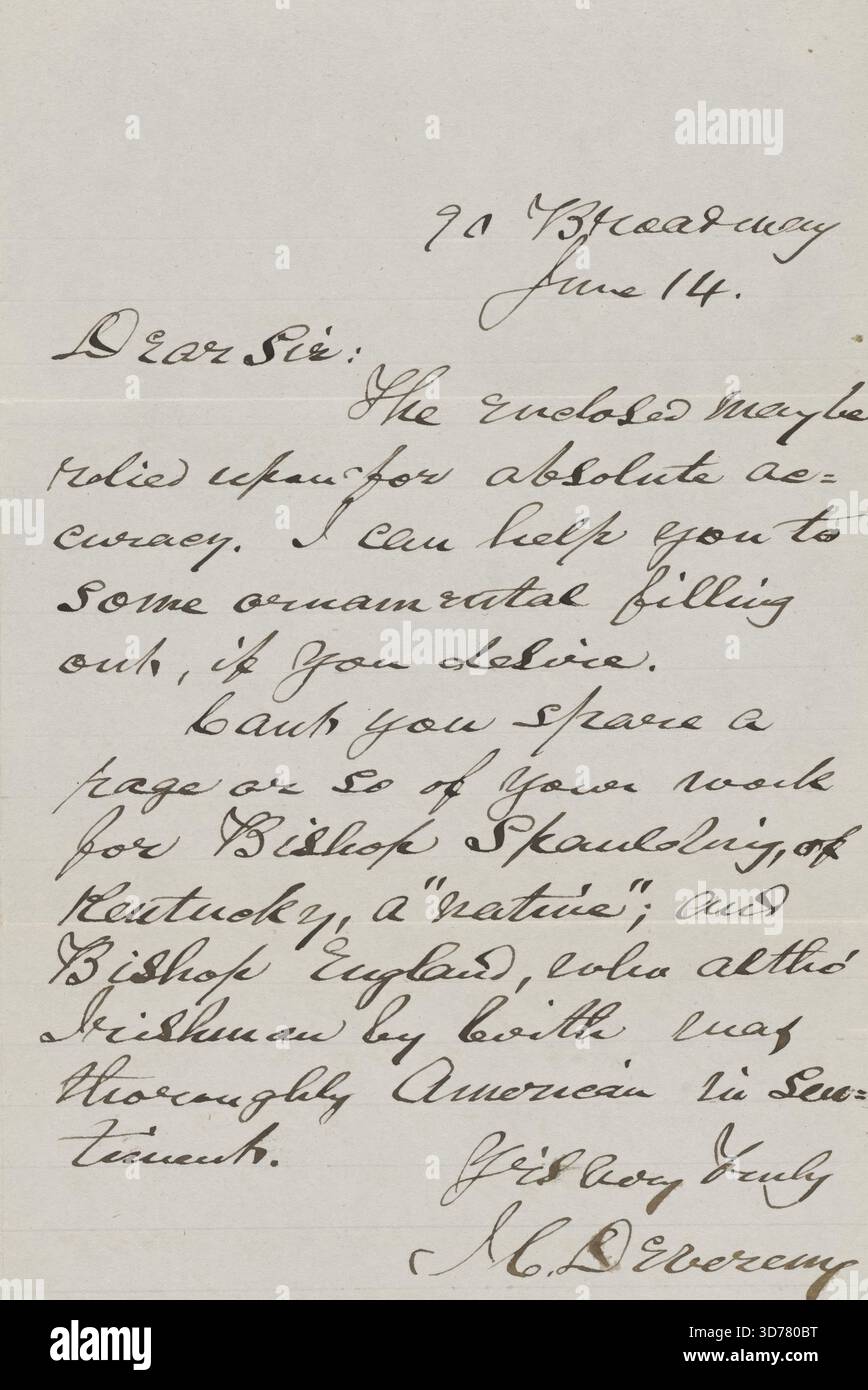 90 Broadway
June 14.
Dear Sir:
The enclosed may be
relied upon for absolute ac=
curacy. I can help you to
some ornamental filling
out, if you desire.
Cant you spare a
page or so of your work
for Bishop Spaulding, of
Kentucky, a "native"; and
Bishop England, who altho'
Irishman by birth was
thoroughly American in sen=
timent.
Yrs Very Truly
J. C. Devereux
alamy
Image ID: 3D780BT
www.alamy.com